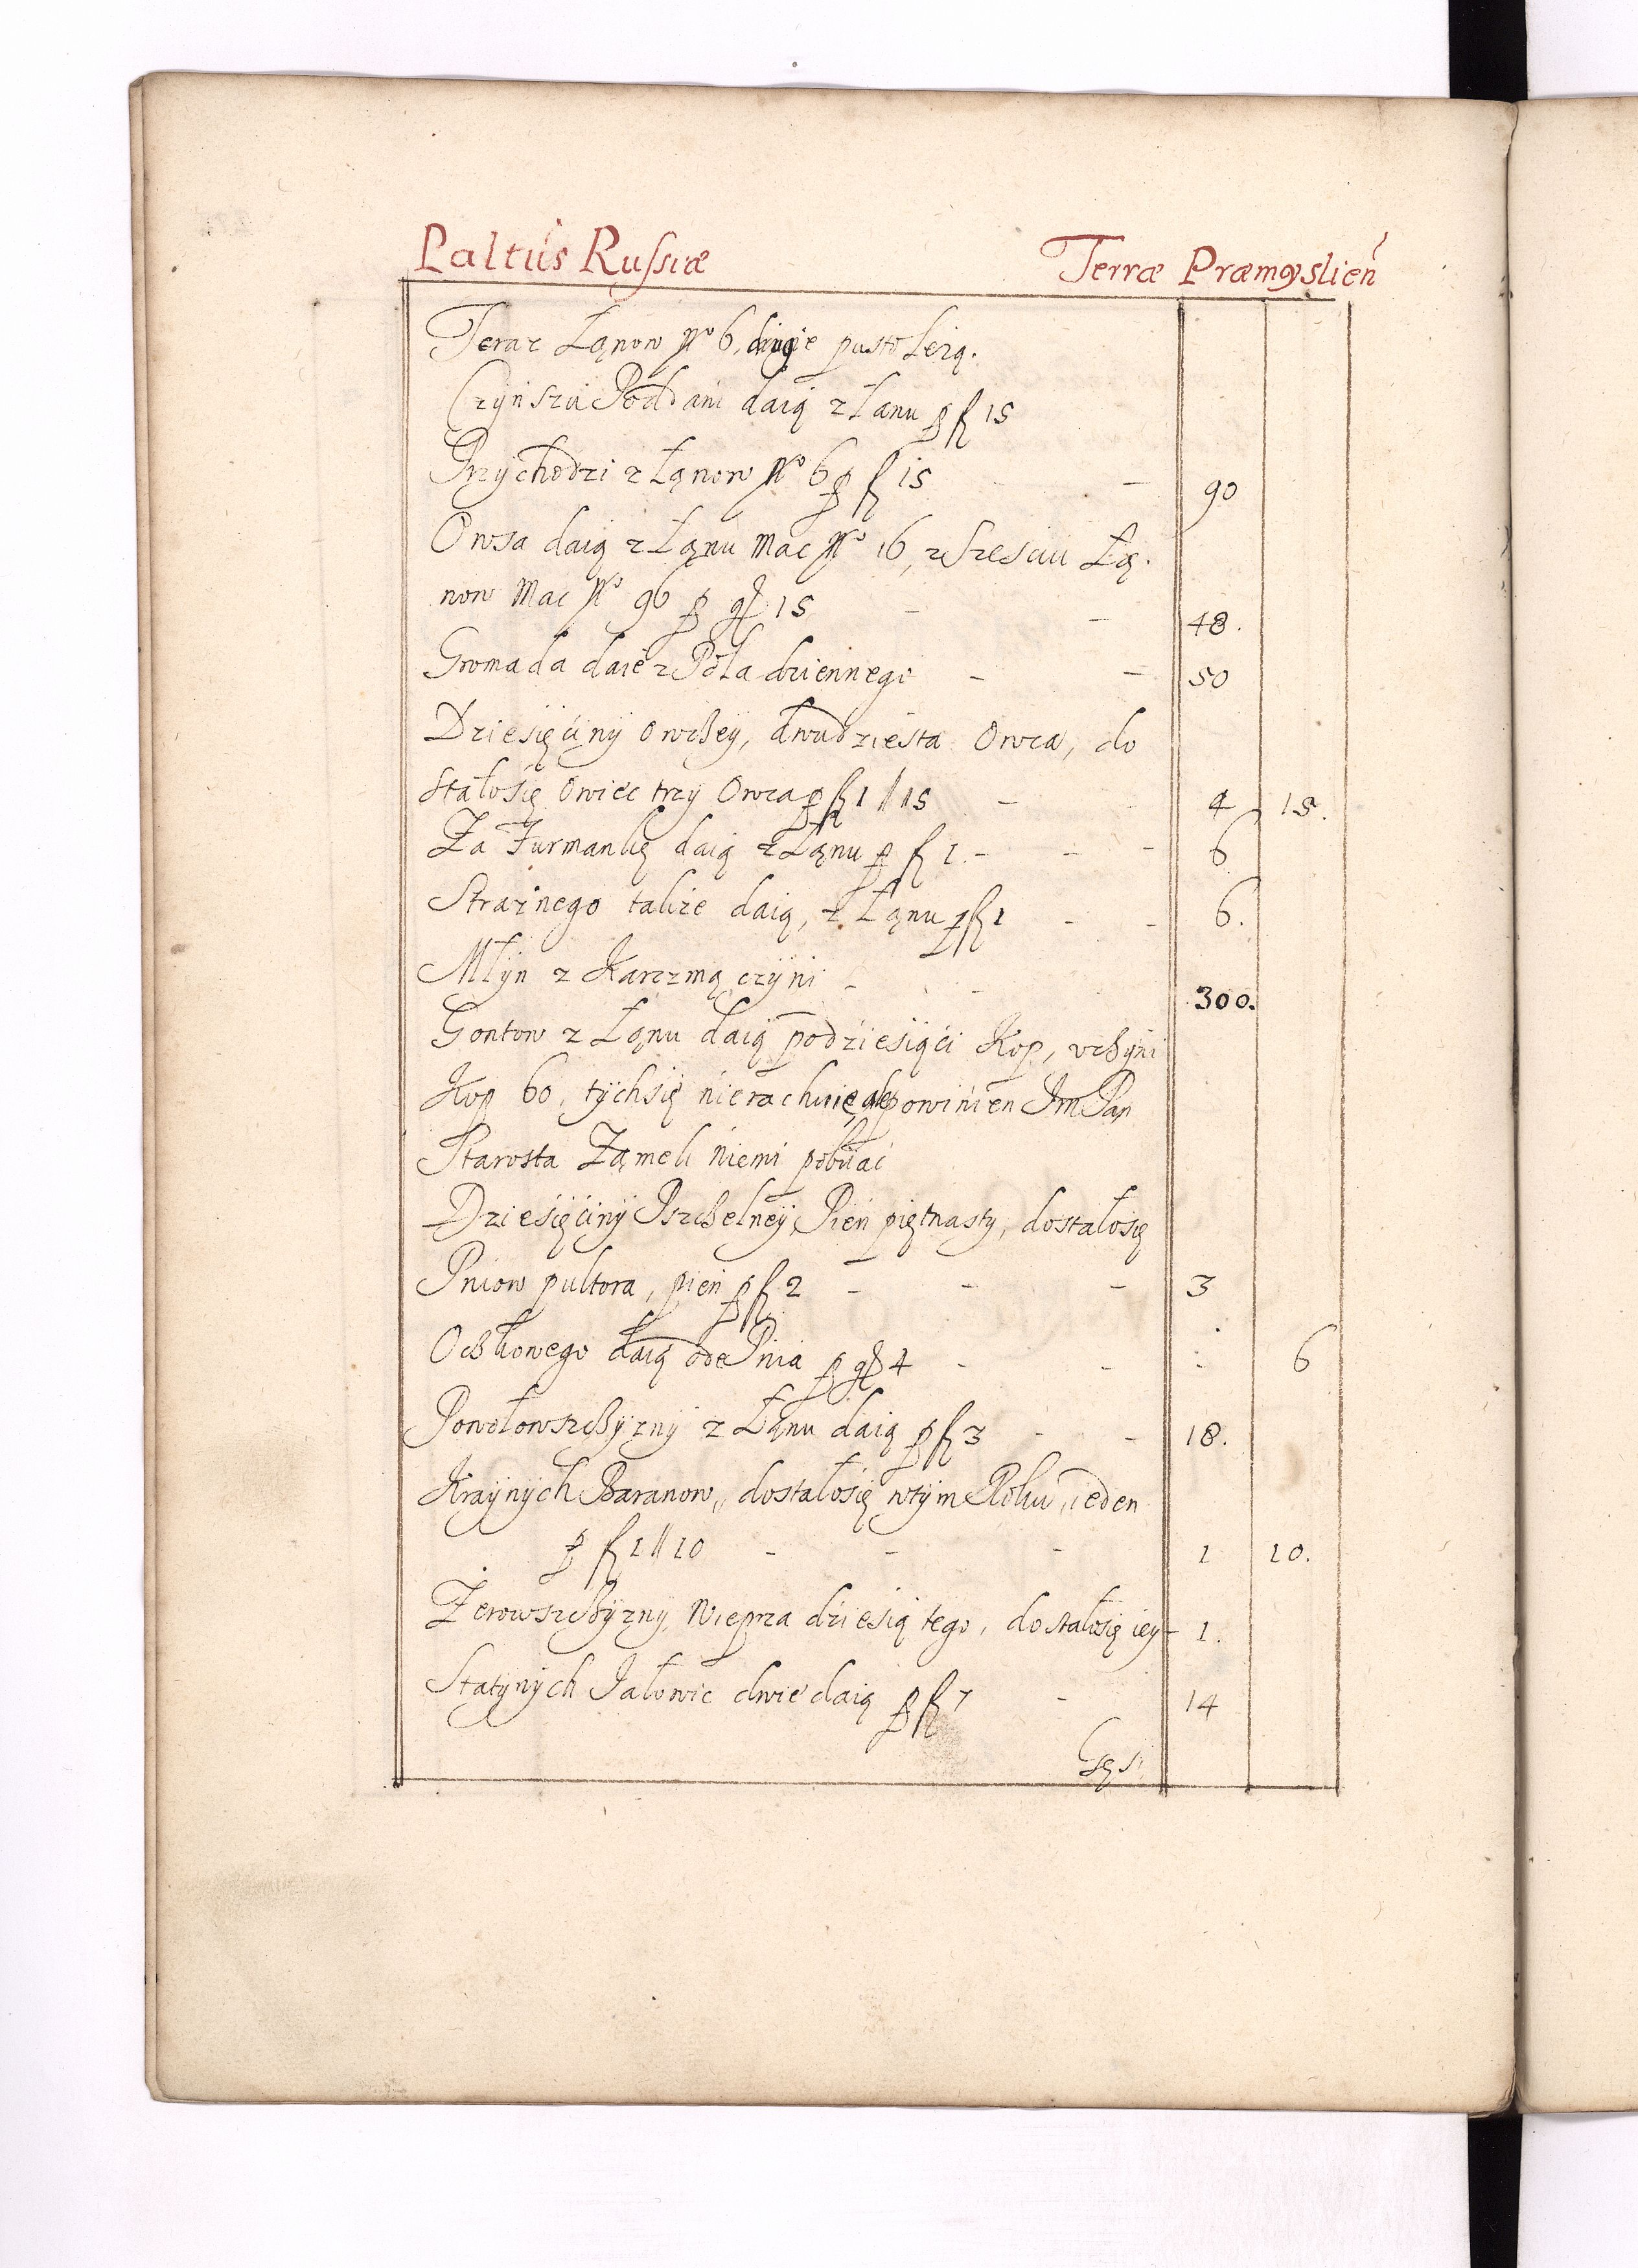 Paltus Russiæ Terræ Præmyslien̄
Teraz Łąnow Nº 6, drugie pusto leżą.
Czynszu Poddani daią z Łanu p fl 15
Przychodzi z Łąnow Nº 6 p fl 15 — 90
Owsa daią z Łąnu Mac Nº 16, z Szesciu Łą-
now Mac Nº 96 p gr 15 — 48.
Gromada daie z Pola dziennego — 50
Dziesięciny Owczey, dwudziesta Owca, do
stałosię Owiec trzy Owca p fl 1 // 15 — 4 15.
Za Furmankę daią z Łąnu p fl 1. — 6
Strażnego także daią, z Łąnu p fl 1 — 6.
Młyn z Karczmą czyni — 300.
Gontow z Łąnu daią podziesiąci Kop, vczyni
Kop 60, tychsię nierachuie, ale powinien Im Pan
Starosta Zamek niemi pobiiać
Dziesięciny Pszczelney, Pień piętnasty, dostałosię
Pniow pułtora, pień p fl 2 — 3
Oczkowego daią ode Pnia p gr 4 — 6
Powołowszczyzny z Łąnu daią p fl 3 — 18.
Kraynych Baranow, dostałosię wtym Roku, ieden
p fl 1 // 10 — 1 10.
Żerowszczyzny, Wieprza dziesiątego, dostałosię iey — 1.
Statynych Jałowic dwie daią p fl 7 — 14
Gęs